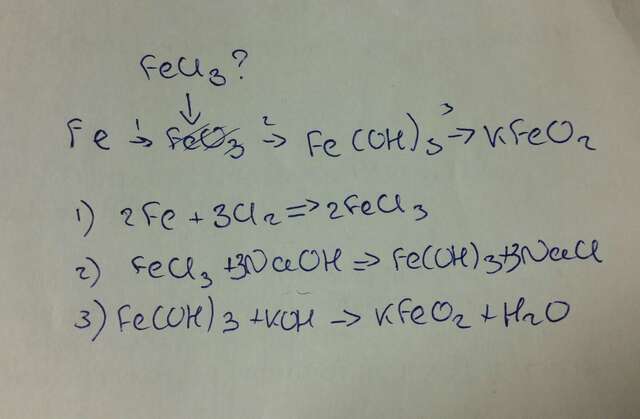 FeCl₃?
↓
Fe →¹ F̶e̶O̶₃̶ →² Fe(OH)₃ →³ KFeO₂
1) 2Fe + 3Cl₂ => 2FeCl₃
2) FeCl₃ + 3NaOH => Fe(OH)₃ + 3NaCl
3) Fe(OH)₃ + KOH → KFeO₂ + H₂O